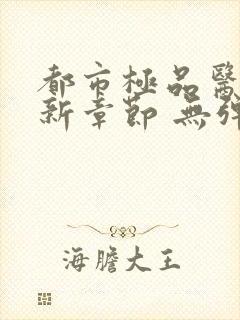 都市極品醫
新章節 無彈
海膽大王